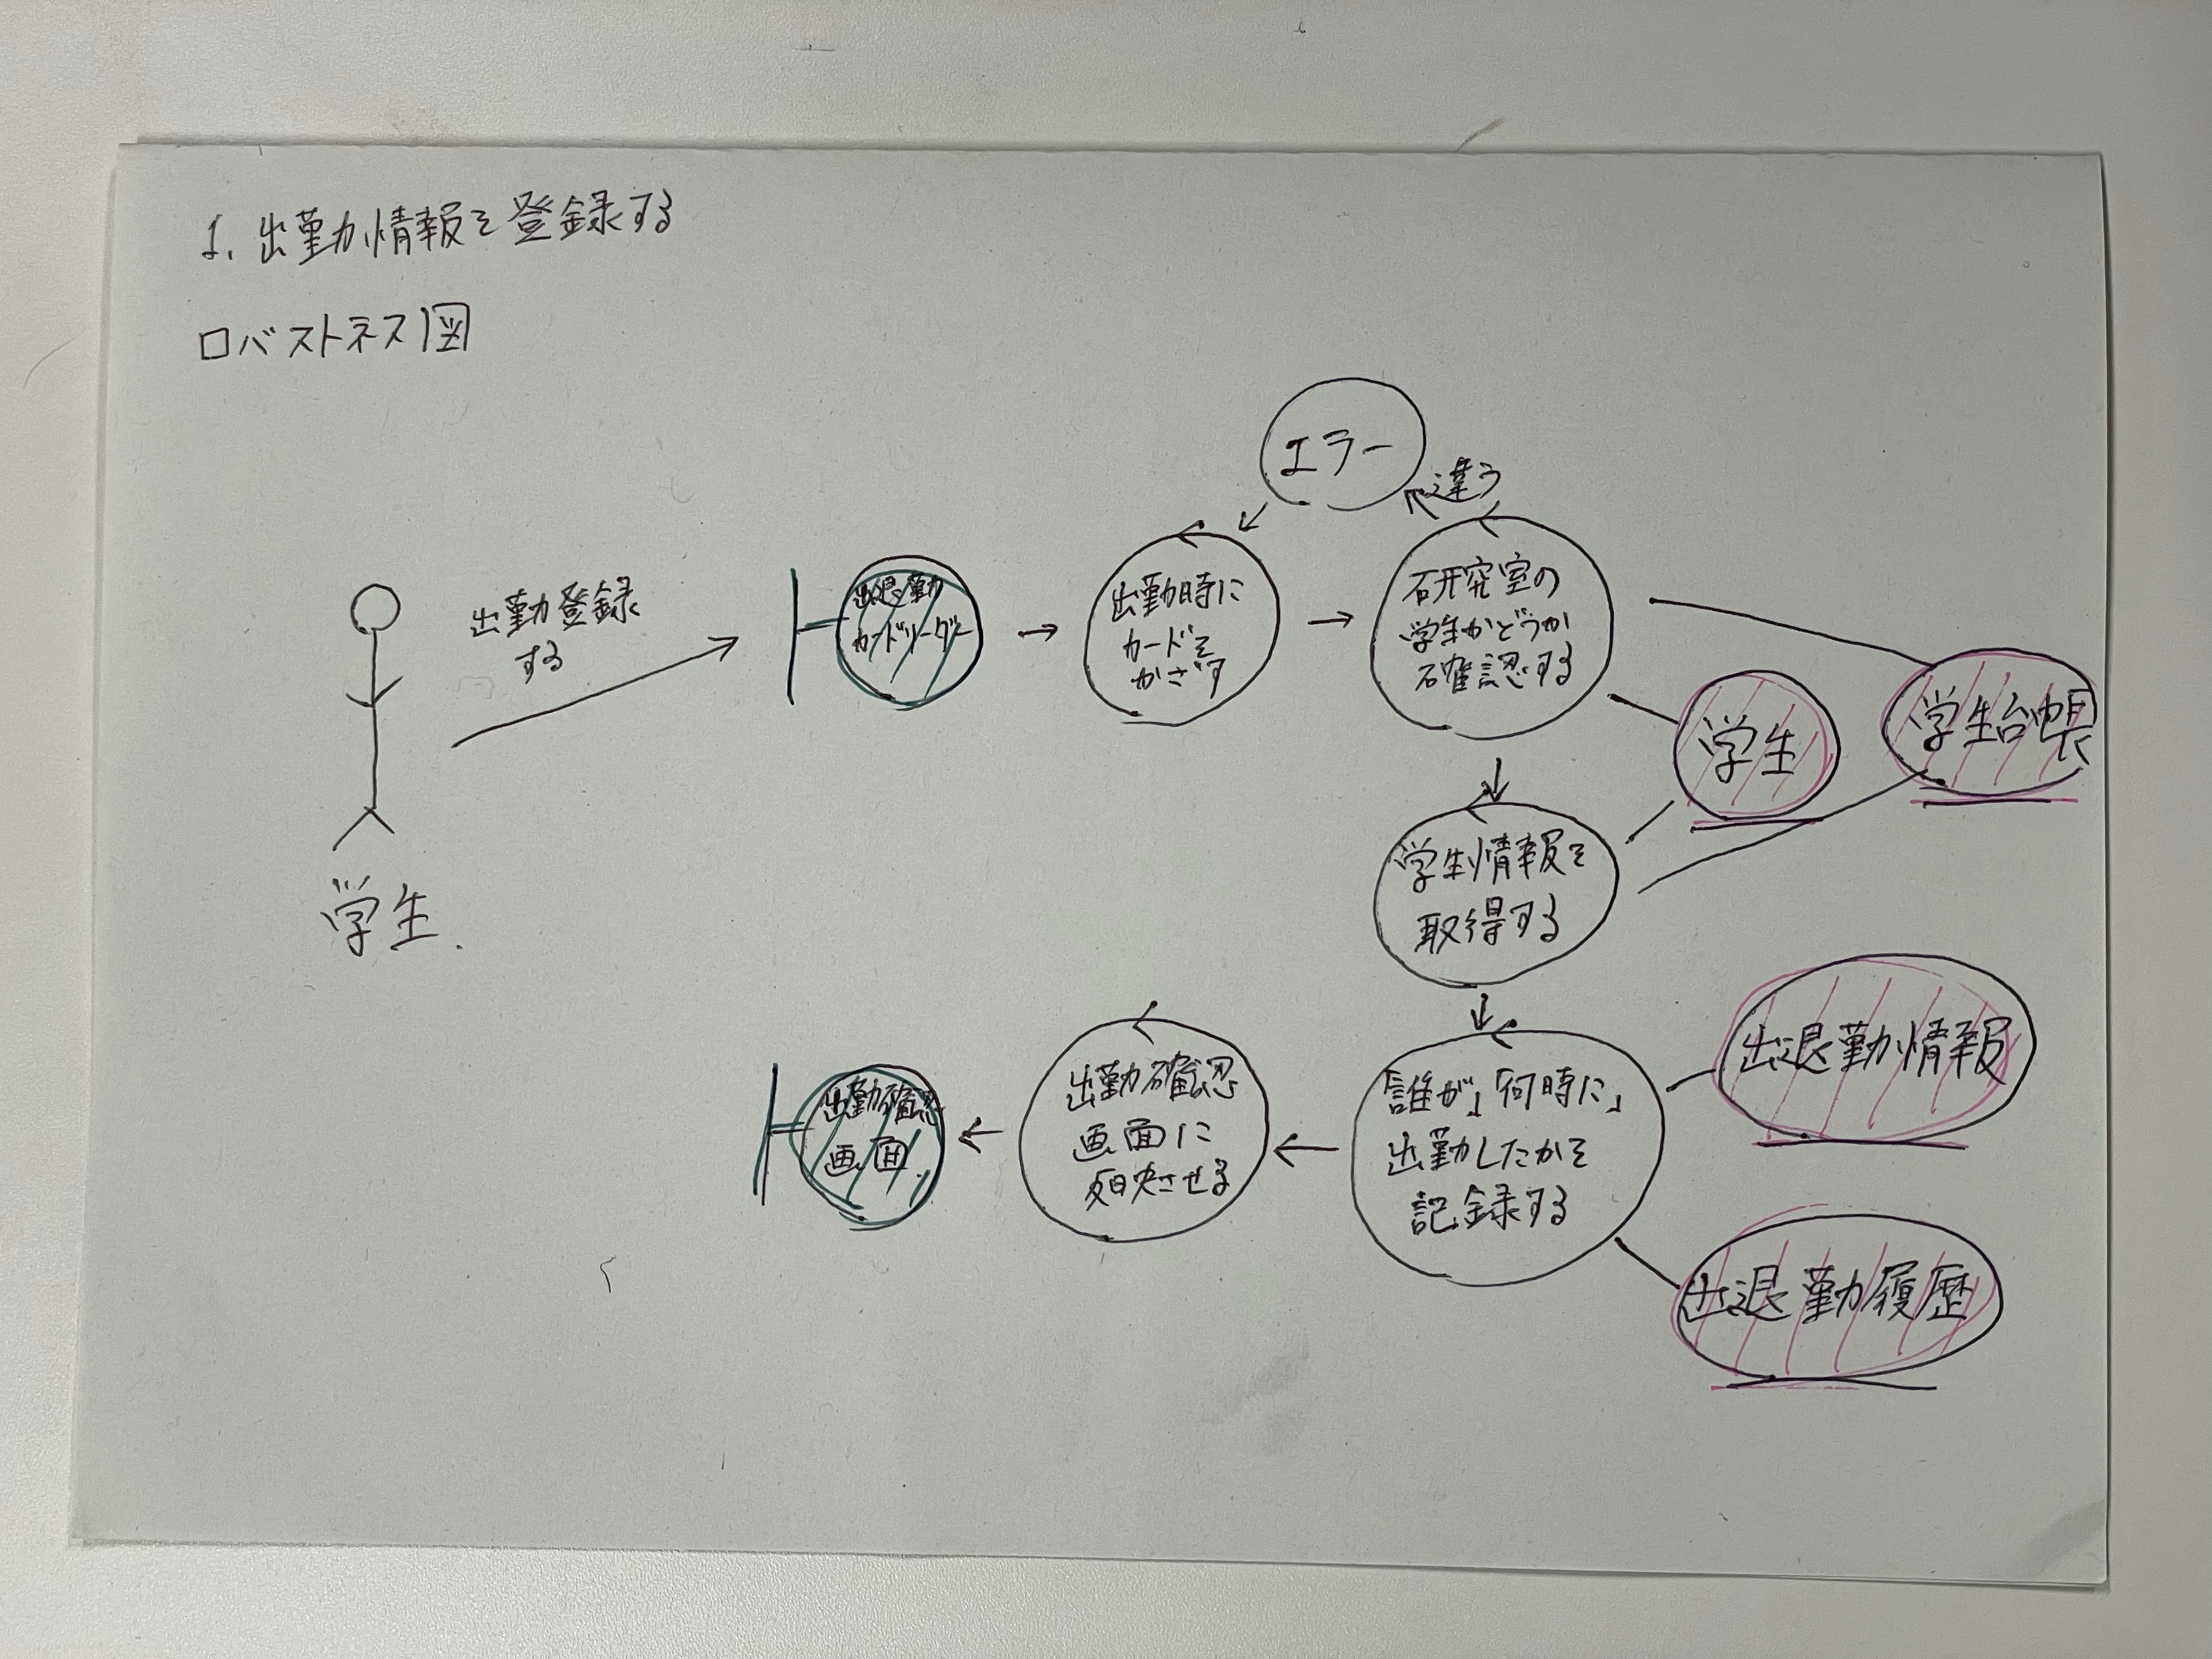 1. 出勤情報を登録する
ロバストネス図
エラー
違う
出勤登録
する
学生
出退勤
カードリーダー
出勤時に
カードを
かざす
研究室の
学生かどうか
確認する
学生
学生台帳
学生情報を
取得する
「誰が」「何時に」
出勤したかを
記録する
出退勤情報
出退勤履歴
出勤確認
画面に
反映させる
出勤確認
画面